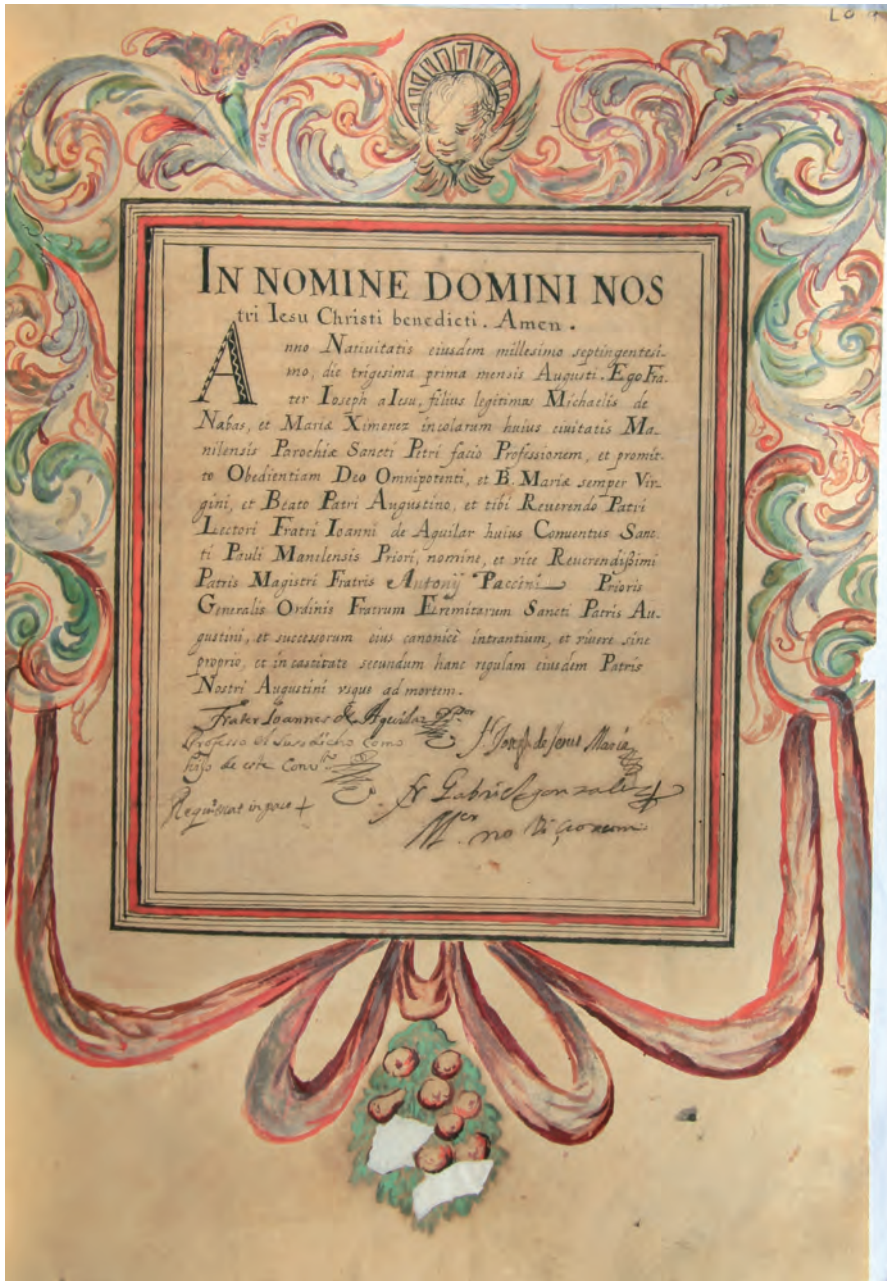 LO
IN NOMINE DOMINI NOS
tri Iesu Christi benedicti. Amen.
Anno Nativitatis eiusdem millesimo septingentesi-
mo, die trigesima prima mensis Augusti. Ego Fra-
ter Ioseph a Iesu, filius legitimus Michaelis de
Nabas, et Mariæ Ximenez incolarum huius ciuitatis Ma-
nilensis Parochiæ Sancti Petri facio Professionem, et promit-
to Obedientiam Deo Omnipotenti, et B. Mariæ semper Vir-
gini, et Beato Patri Augustino, et tibi Reuerendo Patri
Lectori Fratri Ioanni de Aguilar huius Conuentus Sanc-
ti Pauli Manilensis Priori, nomine, et vice Reuerendißimi
Patris Magistri Fratris Antonij Paccini Prioris
Generalis Ordinis Fratrum Eremitarum Sancti Patris Au-
gustini, et successorum eius canonicè intrantium, et viuere sine
proprio, et in castitate secundum hanc regulam eiusdem Patris
Nostri Augustini vsque ad mortem.
Frater Ioannes de Aguilar Por
Professo el susodicho como
hijo de este Convto
fr. Joseph de Jesus Maria
Requiescat in pace +
fr Gabriel gonzalez
Mer no